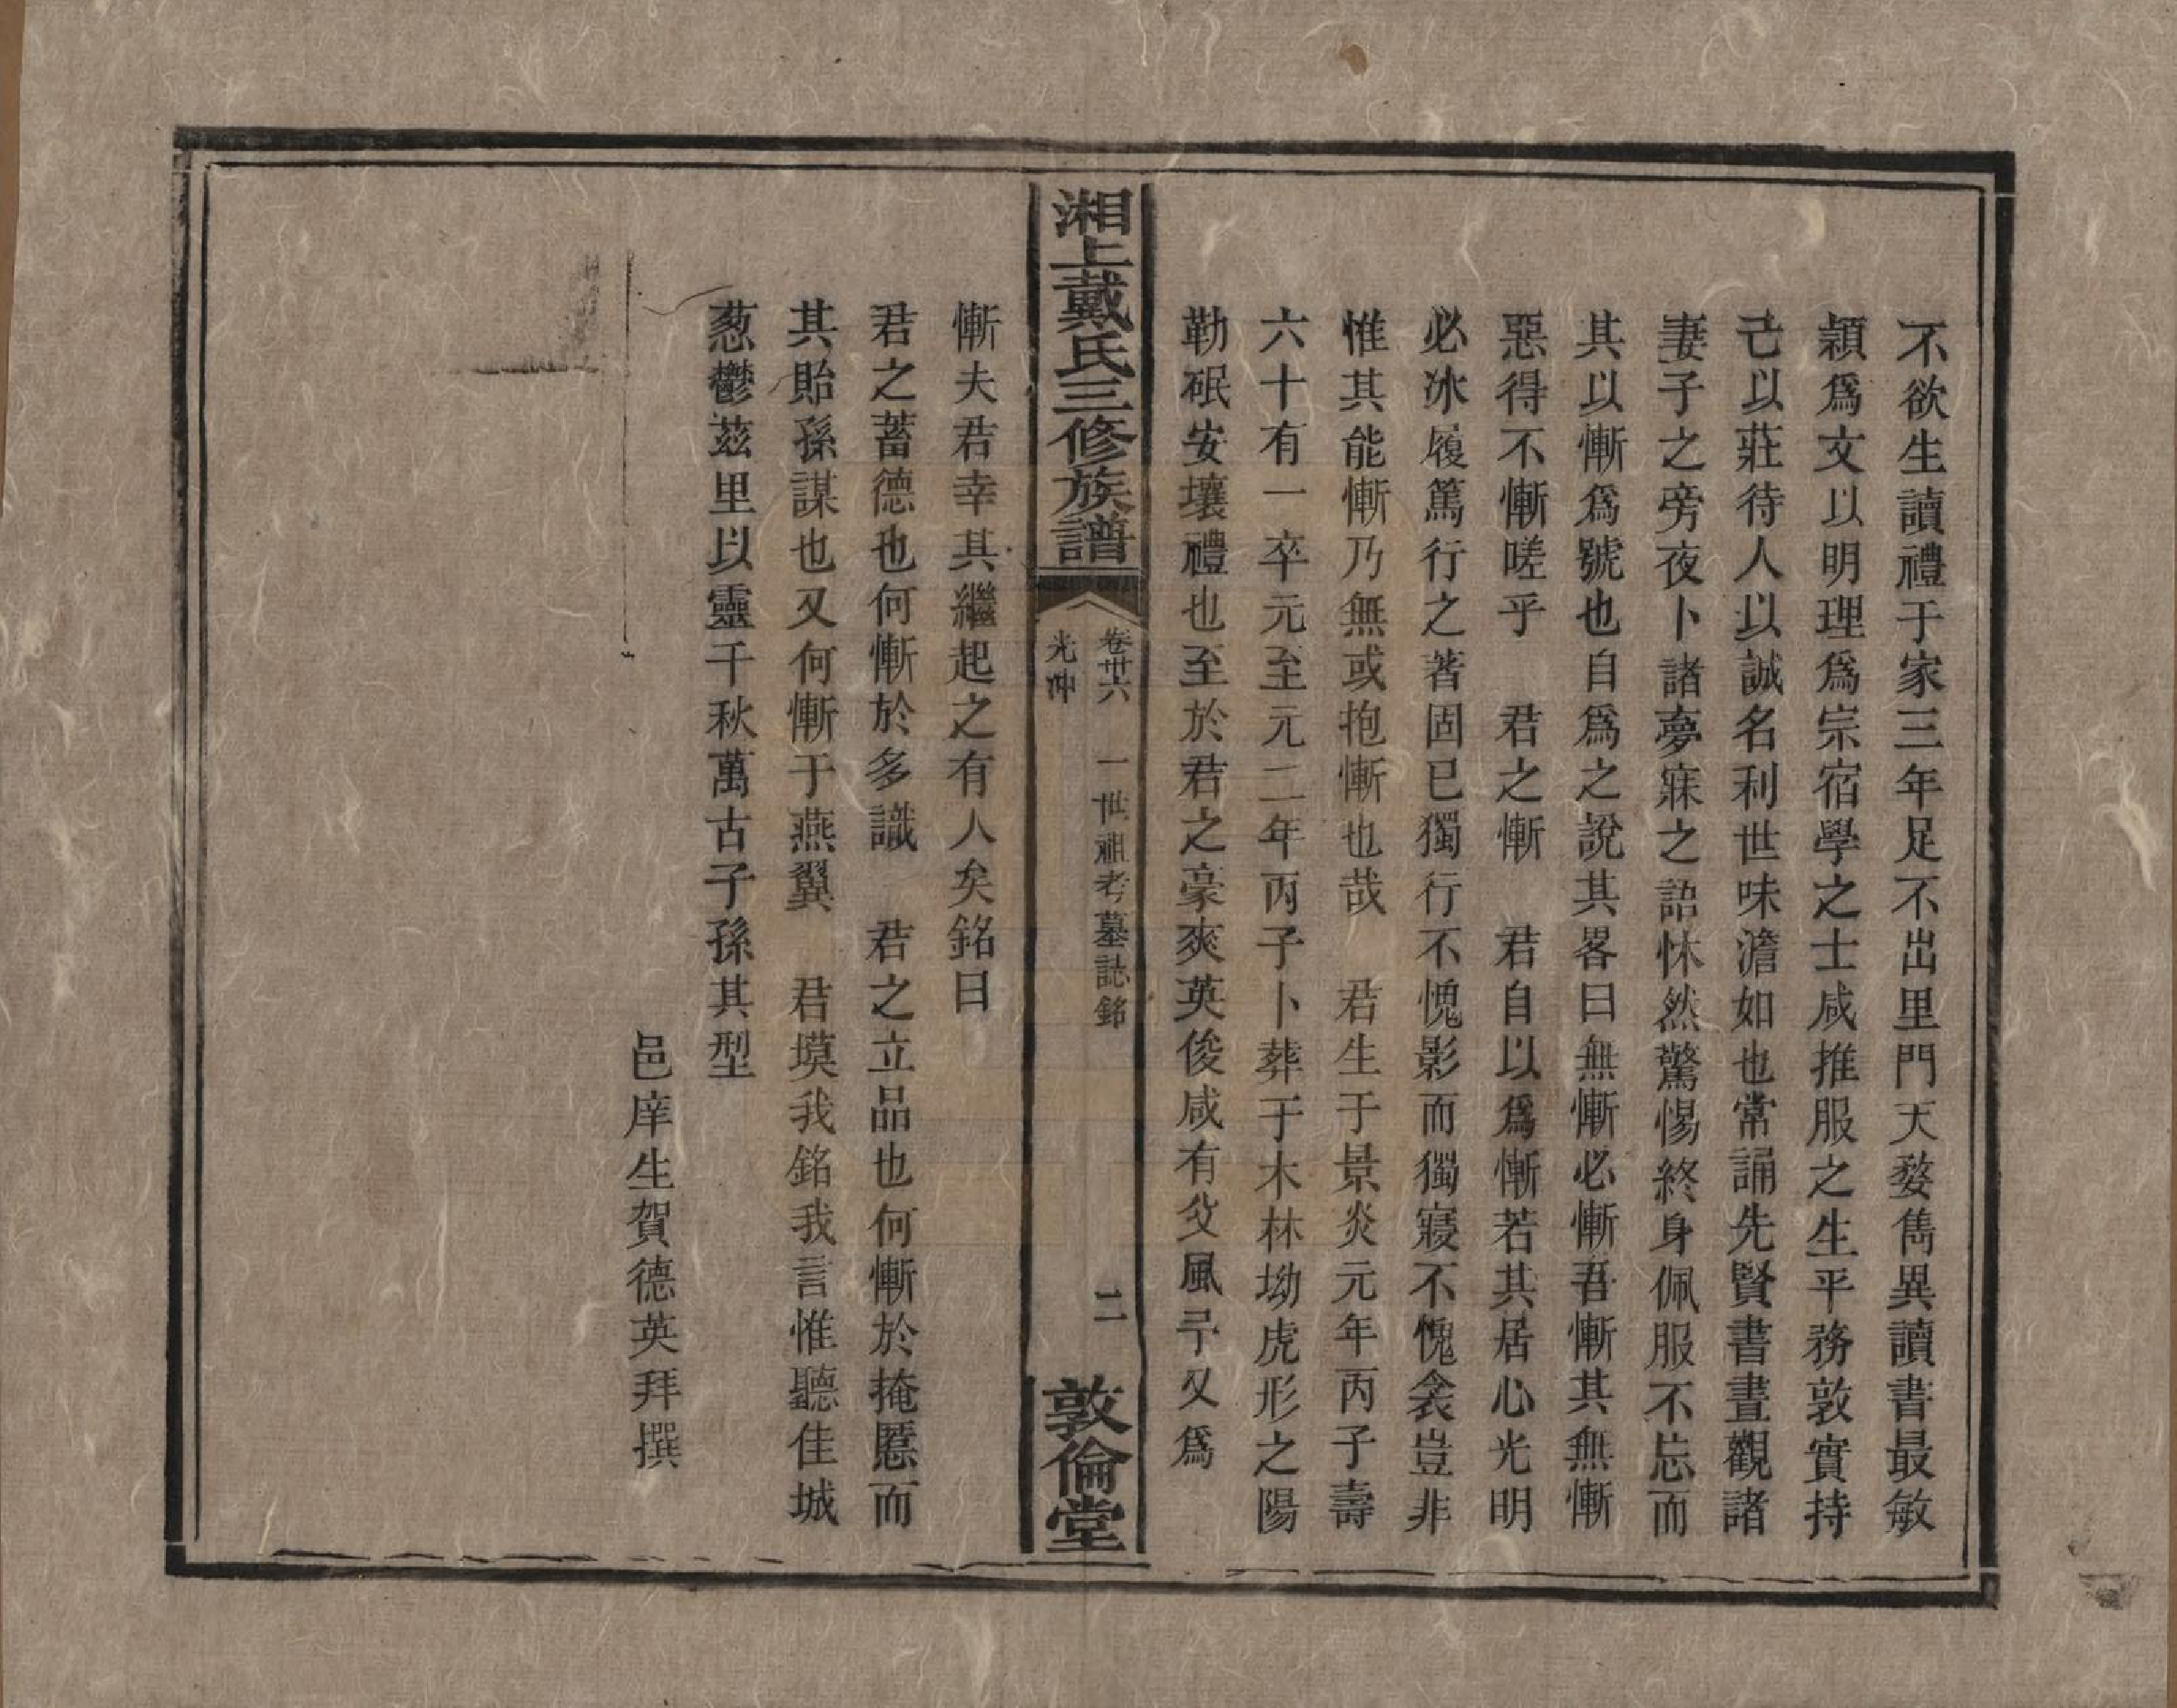 不欲生讀禮于家三年足不出里門天婺雋異讀書最敏
穎爲文以明理爲宗宿學之士咸推服之生平務敦實持
己以莊待人以誠名利世味澹如也常誦先賢書晝觀諸
妻子之旁夜卜諸夢寐之語怵然驚惕終身佩服不忘而
其以慚爲號也自爲之說其畧曰無慚必慚吾慚其無慚
惡得不慚嗟乎　君之慚　君自以爲慚若其居心光明
必冰履篤行之著固已獨行不愧影而獨寢不愧衾豈非
惟其能慚乃無或抱慚也哉　君生于景炎元年丙子壽
六十有一卒元至元二年丙子卜葬于木林坳虎形之陽
勒碈安壤禮也至於君之豪爽英俊咸有父風予又爲
湘上戴氏三修族譜
卷卅六　一世祖考墓誌銘　二
光冲
敦倫堂
慚夫君幸其繼起之有人矣銘曰
君之蓄德也何慚於多識　君之立品也何慚於掩慝而
其貽孫謀也又何慚于燕翼　君塻我銘我言惟聽佳城
葱鬱茲里以靈千秋萬古子孫其型
邑庠生賀德英拜撰